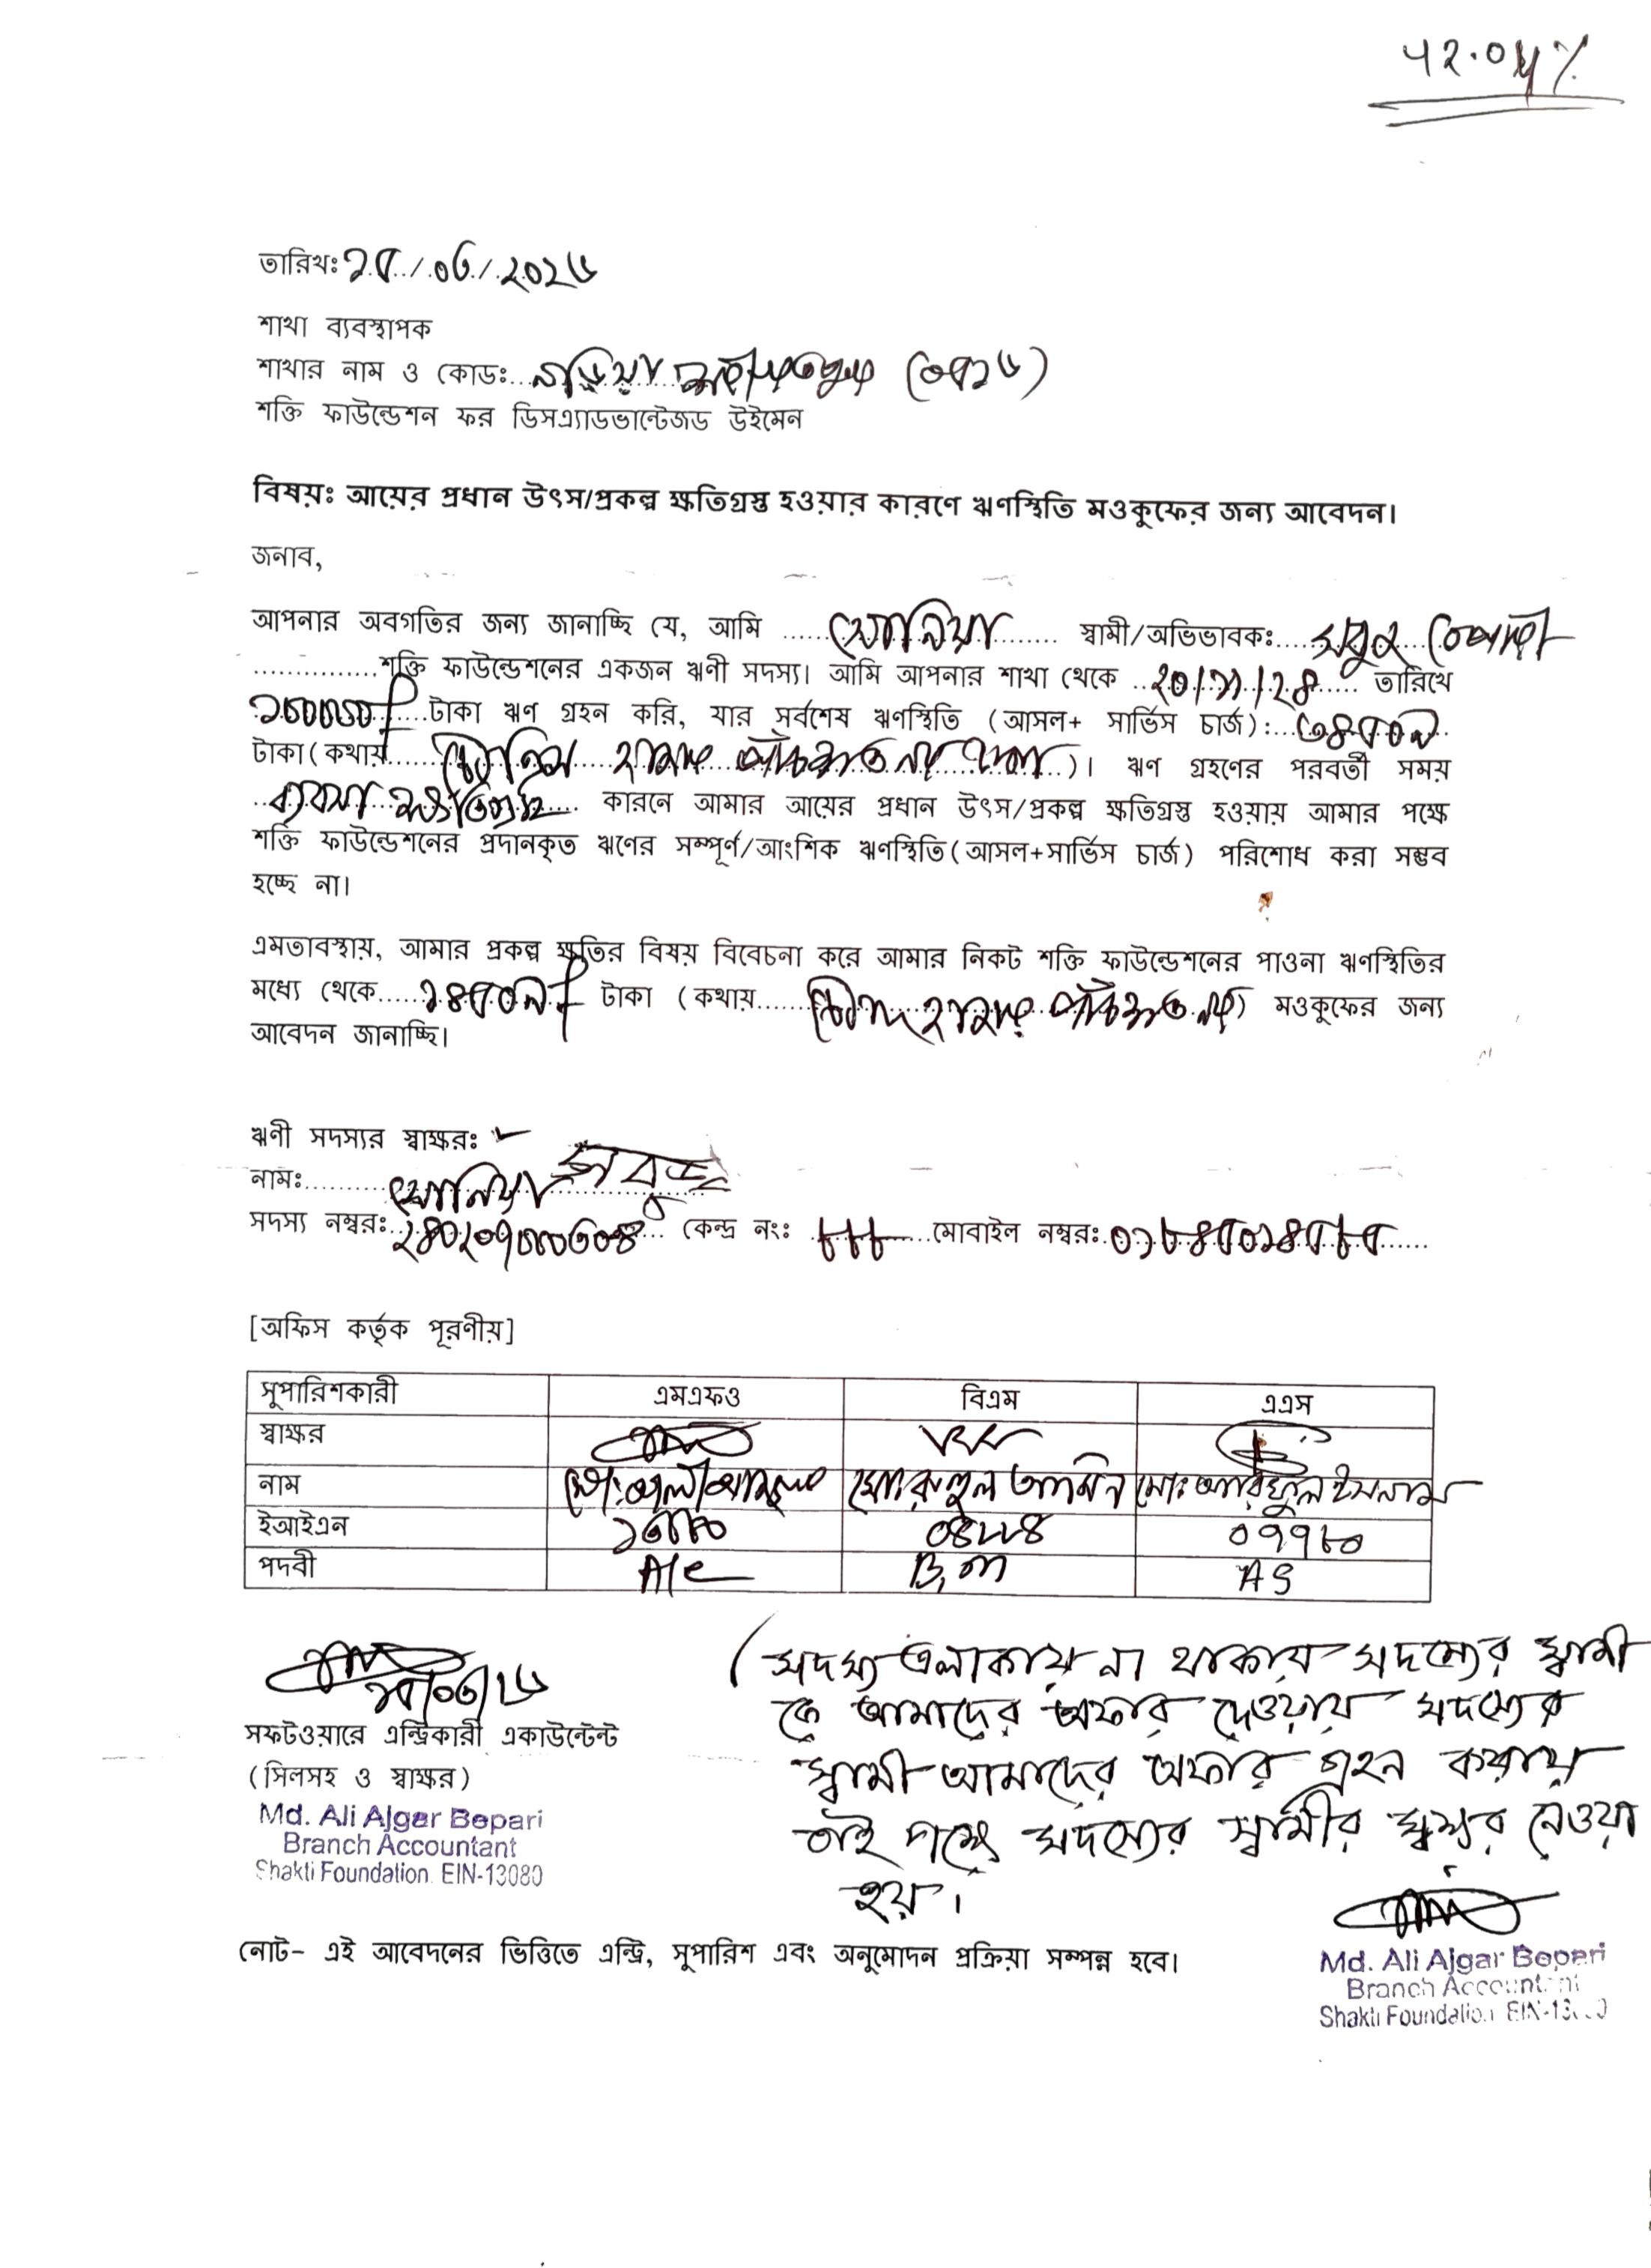 ৪২.০৫%
তারিখঃ ১৫/০৩/২০২৬
শাখা ব্যবস্থাপক
শাখার নাম ও কোডঃ নড়িয়া শরীয়তপুর (০৫১৬)
শক্তি ফাউন্ডেশন ফর ডিসএ্যাডভান্টেজড উইমেন
বিষয়ঃ আয়ের প্রধান উৎস/প্রকল্প ক্ষতিগ্রস্ত হওয়ার কারণে ঋণস্থিতি মওকুফের জন্য আবেদন।
জনাব,
আপনার অবগতির জন্য জানাচ্ছি যে, আমি সোনিয়া স্বামী/অভিভাবকঃ
শক্তি ফাউন্ডেশনের একজন ঋণী সদস্য। আমি আপনার শাখা থেকে ২০/১১/২৪ তারিখে
টাকা ঋণ গ্রহন করি, যার সর্বশেষ ঋণস্থিতি (আসল+ সার্ভিস চার্জ): ৩৪৫০৯
টাকা(কথায় চৌত্রিশ হাজার পাঁচশত নয় টাকা)। ঋণ গ্রহণের পরবর্তী সময়
ব্যবসা ক্ষতিগ্রস্থ কারনে আমার আয়ের প্রধান উৎস/প্রকল্প ক্ষতিগ্রস্ত হওয়ায় আমার পক্ষে
শক্তি ফাউন্ডেশনের প্রদানকৃত ঋণের সম্পূর্ণ/আংশিক ঋণস্থিতি(আসল+সার্ভিস চার্জ) পরিশোধ করা সম্ভব
হচ্ছে না।
এমতাবস্থায়, আমার প্রকল্প ক্ষতির বিষয় বিবেচনা করে আমার নিকট শক্তি ফাউন্ডেশনের পাওনা ঋণস্থিতির
মধ্যে থেকে ১৪৫০৯/ টাকা (কথায় চৌদ্দ হাজার পাঁচশত নয়) মওকুফের জন্য
আবেদন জানাচ্ছি।
ঋণী সদস্যর স্বাক্ষরঃ
নামঃ সোনিয়া
সদস্য নম্বরঃ কেন্দ্র নংঃ ৮৮৮ মোবাইল নম্বরঃ ০১৮৪৫০১৪৫৮৫
[অফিস কর্তৃক পূরণীয়]
সুপারিশকারী এমএফও বিএম এএস
স্বাক্ষর
নাম মোঃ আলী আজগর মোঃ রুহুল আমিন মোঃ আরিফুল ইসলাম
ইআইএন ১৩০৮০ ০৪৮৮৪ ০৭৭৮০
পদবী A/c B.M AS
১৫/০৩/২৬
সফটওয়ারে এন্ট্রিকারী একাউন্টেন্ট
(সিলসহ ও স্বাক্ষর)
Md. Ali Ajgar Bepari
Branch Accountant
Shakti Foundation. EIN-13080
(সদস্য এলাকায় না থাকায় সদস্যের স্বামী
কে আমাদের অফার দেওয়ায় সদস্যের
স্বামী আমাদের অফার গ্রহন করায়
তাই পক্ষে সদস্যের স্বামীর স্বাক্ষর নেওয়া
হয়।
নোট- এই আবেদনের ভিত্তিতে এন্ট্রি, সুপারিশ এবং অনুমোদন প্রক্রিয়া সম্পন্ন হবে।
Md. Ali Ajgar Bepari
Branch Accountant
Shakti Foundation EIN-13080